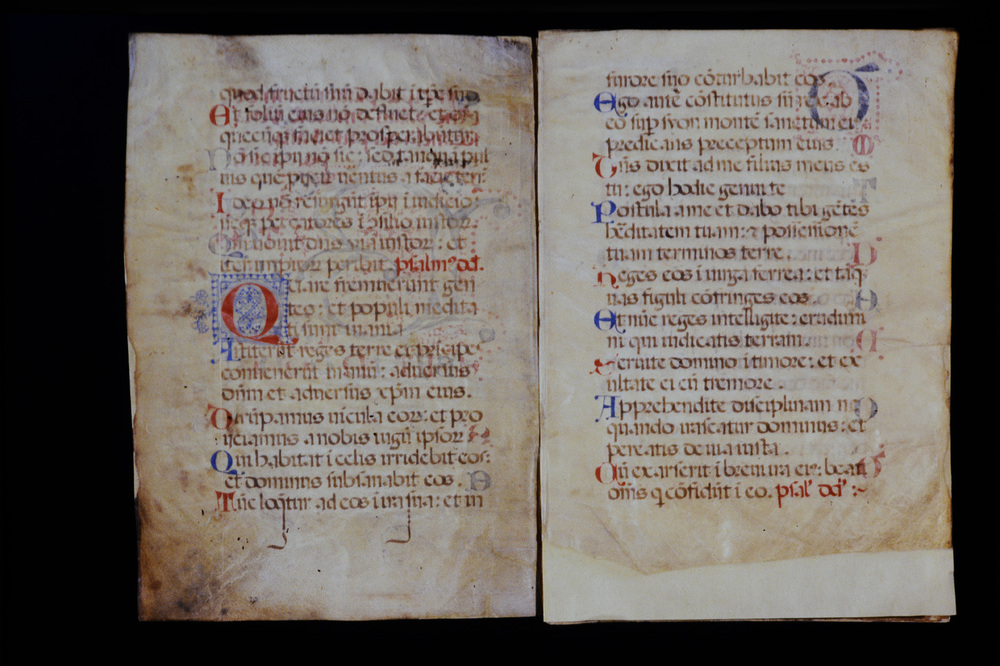 quod fructū suū dabit ī tp̄e suo
Et foliū eius nō defluet: et oīa
quecūq; faciet prosperabuntur
Nō sic īpii nō sic: sed tanquā pul
uis quē proicit uentus a facie terre
Ideo nō resurgūt īpii ī iudicio
neq; peccatores ī cōsilio iustor:
Qm̄ nouit dn̄s uiā iustor: et
iter impior peribit. psalm⁹ dd̄.
Quare fremuerunt gen
tes: et populi medita
ti sunt inania
Astiterūt reges terre et prīcipes
conuenerūt in unū: aduersus
dn̄m et aduersus xp̄m eius.
Dirūpamus uīcula eor: et pro
iiciamus a nobis iugū ipsor
Qui habitat ī celis irridebit eos:
et dominus subsanabit eos.
Tūc loq̄tur ad eos ī ira sua: et in
furore suo cōturbabit eos
Ego autē cōstitutus sū rex ab
eo sup syon montē sanctum eiꝰ
predicans preceptum eius.
Dn̄s dixit ad me filius meus es
tu: ego hodie genui te
Postula a me et dabo tibi gētes
hēditatem tuam: ⁊ possessionē
tuam terminos terre
Reges eos ī uirga ferrea: et tāq̄
uas figuli cōfringes eos.
Et nūc reges intelligite: erudim
ni qui iudicatis terram.
Seruite domino ī timore: et ex
ultate ei cū tremore
Apprehendite disciplinam ne
quando irascatur dominus: et
pereatis de uia iusta.
Cū exarserit ī breui ira eiꝰ: beati
om̄s q̄ cōfidūt ī eo. psal' dd̄